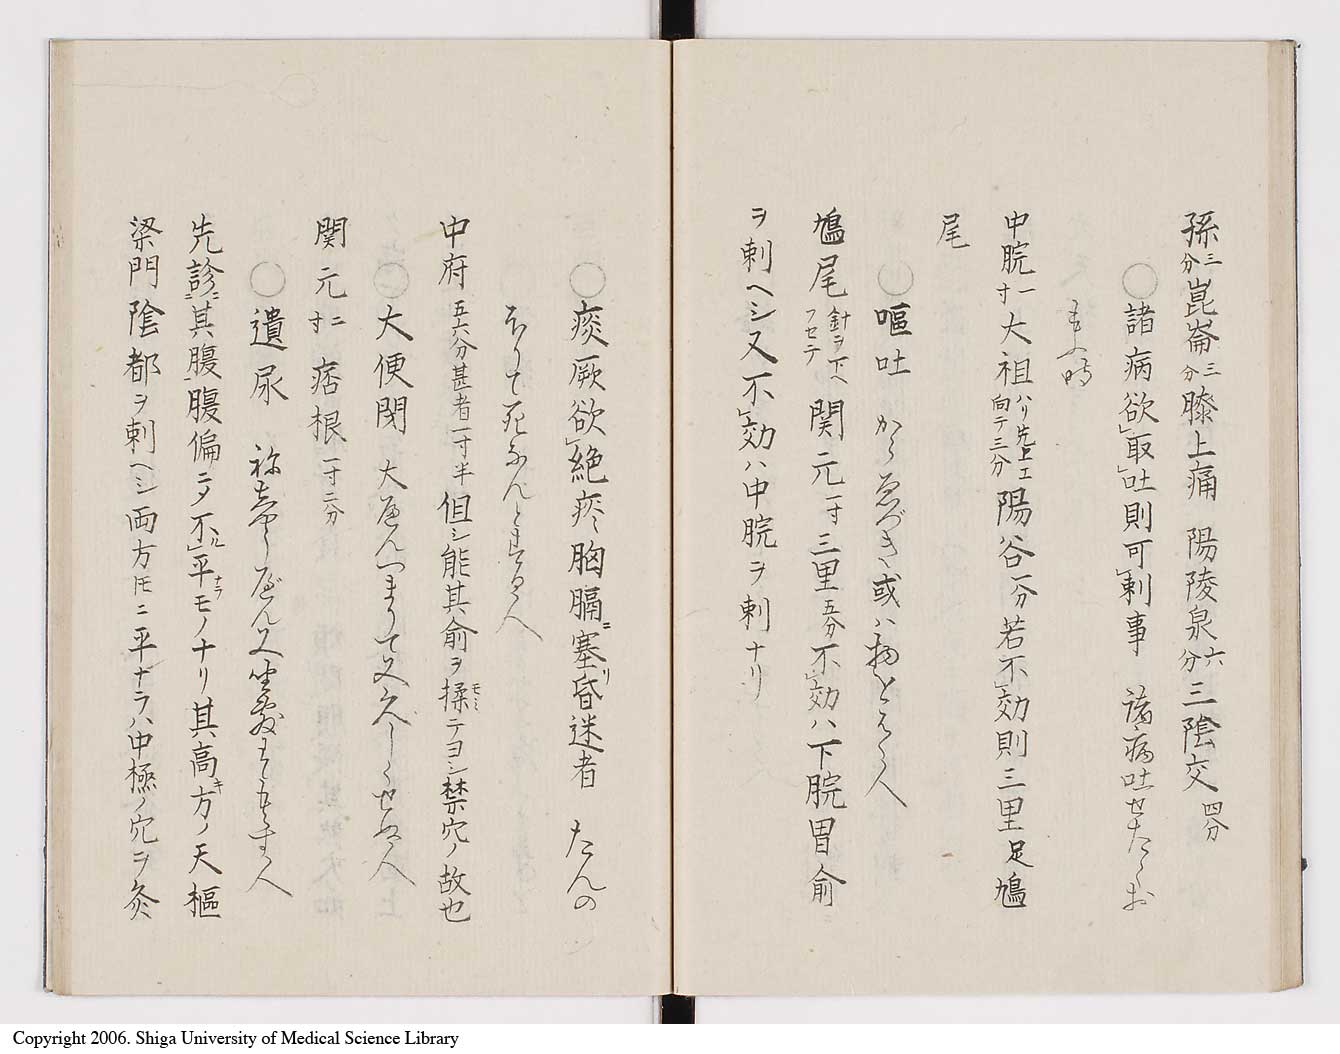 孫三分崑崙三分膝上痛 陽陵泉六分三陰交四分
○諸病欲取吐則可刺事 諸病吐せたくお
もふ時
中脘一寸大祖ハリ先上エ向テ三分陽谷一分若不効則三里足鳩
尾
○嘔吐 からゑづき或ハ物をはく人
鳩尾針ヲ下ヘフセテ関元一寸三里五分不効ハ下脘胃俞
ヲ刺ヘシ又不効ハ中脘ヲ刺ナリ
○痰厥欲絶痰胸膈ニ塞リ昏迷者 たんの
ぼりて死なんとする人
中府五六分甚者一寸半但シ能其俞ヲ揉モミテヨシ禁穴ノ故也
○大便閉 大べんつまりて又べしくせぬ人
関元二寸痞根一寸二分
○遺尿
先診ニ其腹腹偏ニタ不ル平ナラモノナリ其高キ方ノ天樞
梁門陰都ヲ刺ヘシ両方トモニ平ナラハ中極ノ穴ヲ灸
Copyright 2006. Shiga University of Medical Science Library